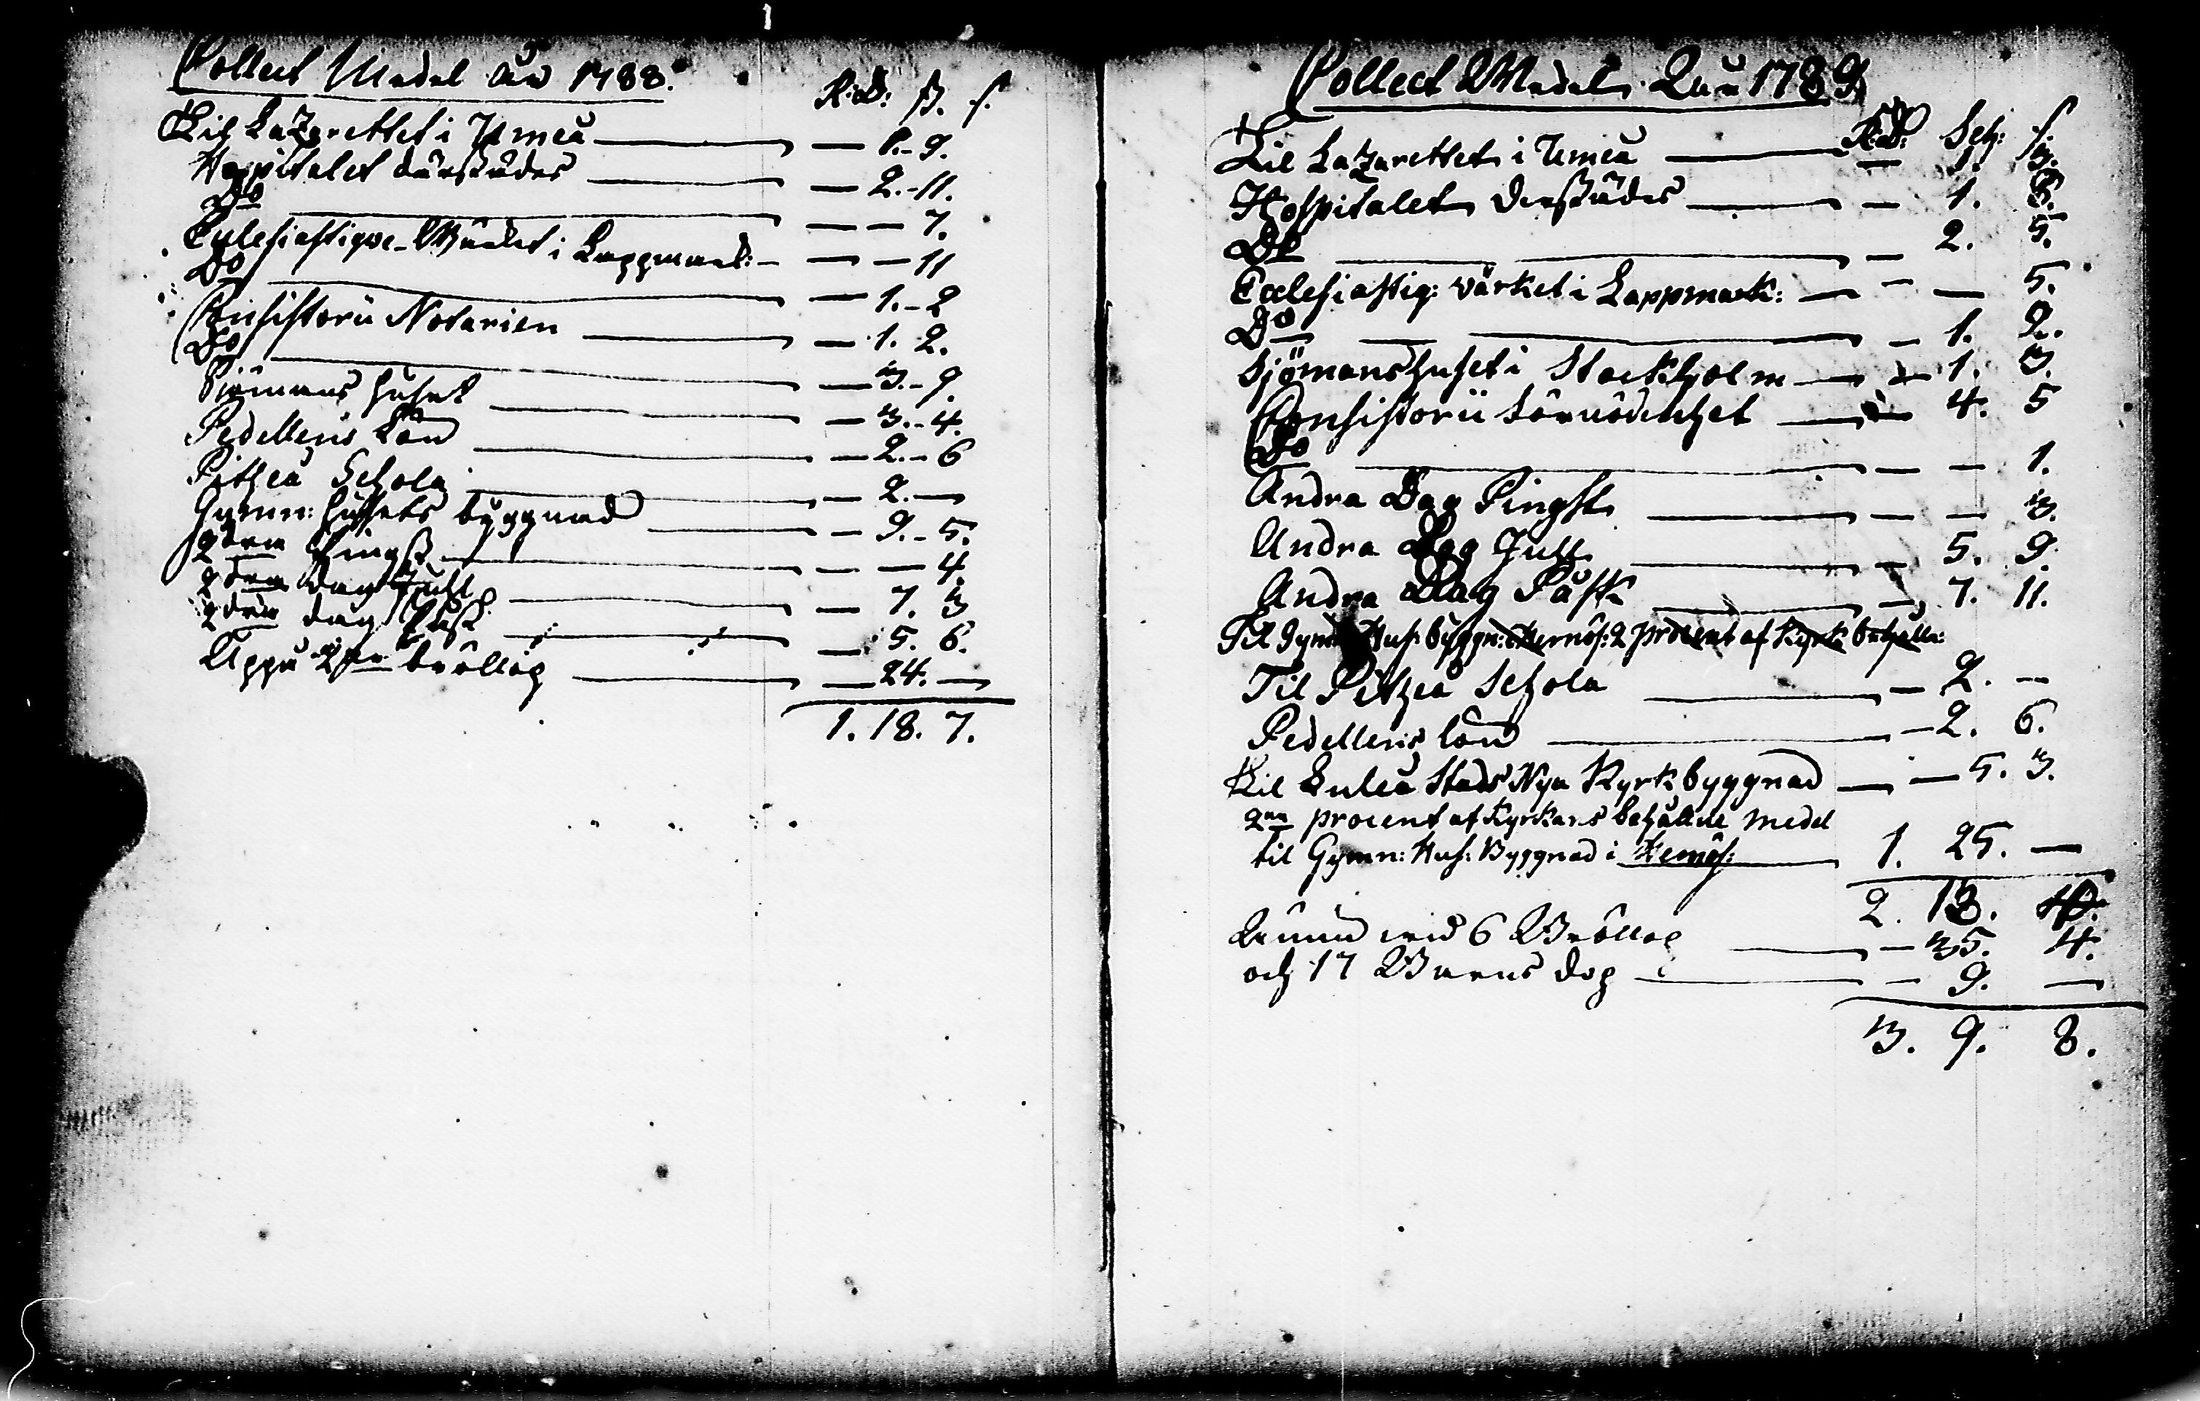 Collect Medel År 1788.
R:d: ß. r.
Til Lazarettet i Umeå — 1.-9.
Hospitalet därstädes — 2.-11.
Do — — 7.
Eclesiastiqve-Wärket i Lappmark:- — — 11
Do — 1.-2
Consistorii Notarien — 1. 2.
Do — 3.-9.
Sjömans huset — 3.-4.
Pedellens Lön — 2.-6
Pitheå Schola — 2.—
Gymn: hussets byggnad — 9.-5.
2dra Pingst — — 4.
2dra dag Juhl — 7. 3
2dra dag Påsk — 5. 6.
Uppå bröllop — 24.—
1. 18. 7.
Collect Medel År 1789
R:d: Sch: r.
Til Lazarettet i Umeå — 1. 3.
Hospitalet derstädes — 1. 8.
Do — 2. 5.
Ecclesiastiq: värket i Lappmark: — — 5.
Do — 1. 2.
Sjömanshuset i Stockholm — 1. 3.
Consistorii — 4. 5
Do — — 1.
Andra Dag Pingst — — 3.
Andra Dag Juhl — 5. 9.
Andra Dag Påsk — 7. 11.
Til Gymn: Hus: byggn: i Hernös: 2 procent af Kyrk behålln:
Til Pitheå Schola — 2. —
Pedellens lön — 2. 6.
Til Luleå Stads Nya Kyrkbyggnad — 5. 3.
2ne procent af Kyrkans behållne medel
til Gymn: Hus: Byggnad i Hernös: 1. 25. —
2. 13. 4.
wid 6 Bröllop — 35. 4.
och 17 Barns dop — 9. —
3. 9. 8.